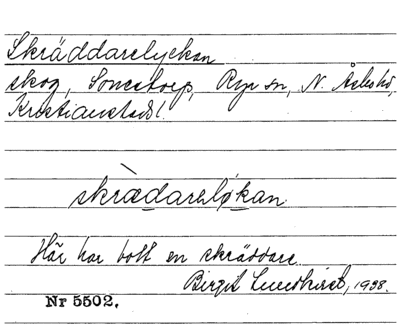 Skräddarelyckan
skog, Sonestorp, Rya sn, N. Åsbo hd,
Kristianstads l.
skrædarelỳkan
Här har bott en skräddare.
Birgit Lundkvist, 1938.
Nr 5502.